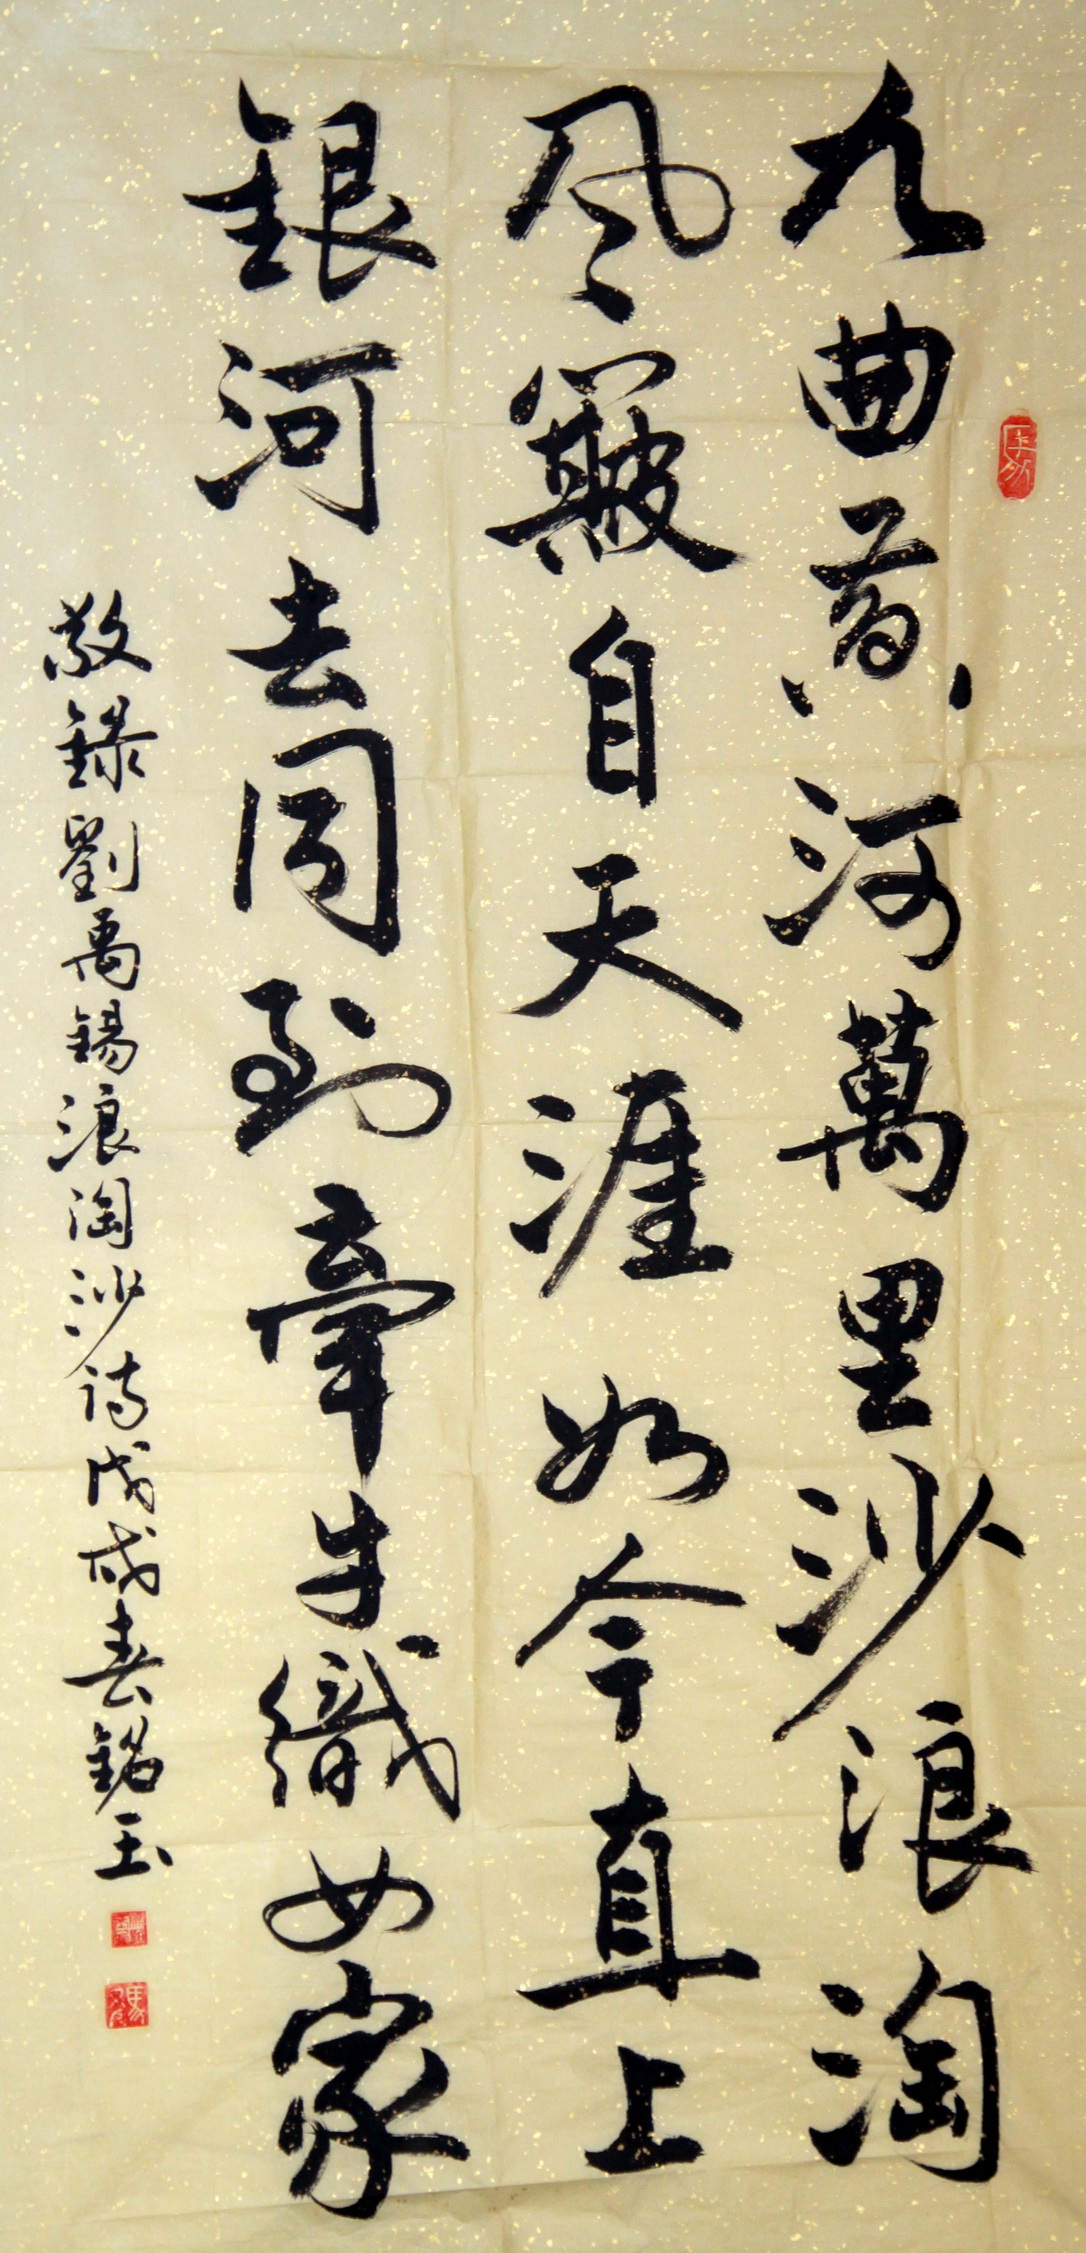 九曲黃河萬里沙浪淘
风簸自天涯如今直上
銀河去同到牽牛織女家
敬錄劉禹錫浪淘沙詩戊戌春銘玉